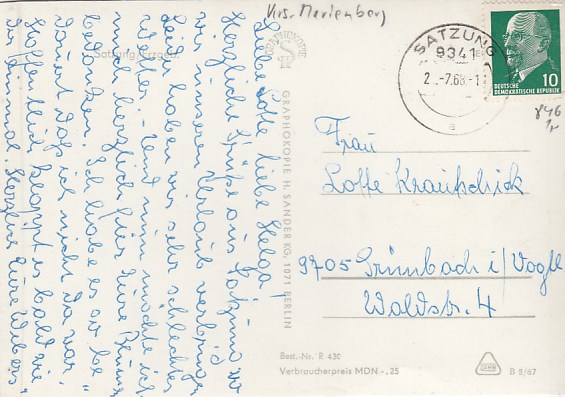 Krs. Marienberg
SATZUNG
9341
DEUTSCHE
DEMOKRATISCHE REPUBLIK
10
Satzung/Erzgeb.
Liebe Lotte, liebe Helga!
Herzliche Grüße aus Satzung wo
wir unseren Urlaub verbringen
Leider haben wir sehr schlechtes
Wetter. Und nun möchte ich
mich herzlich für Eure
bedanken. Ich habe es so be
dauert daß ich nicht da war.
Hoffentlich klappt es bald wie
der einmal. Herzlich Eure
GRAPHOKOPIE
GRAPHOKOPIE H. SANDER KG, 1071 BERLIN
Frau
Lotte Krautschick
9705 Grünbach i/Vogtl
Waldstr. 4
Best.-Nr. R 430
Verbraucherpreis MDN -,25
B 8/67